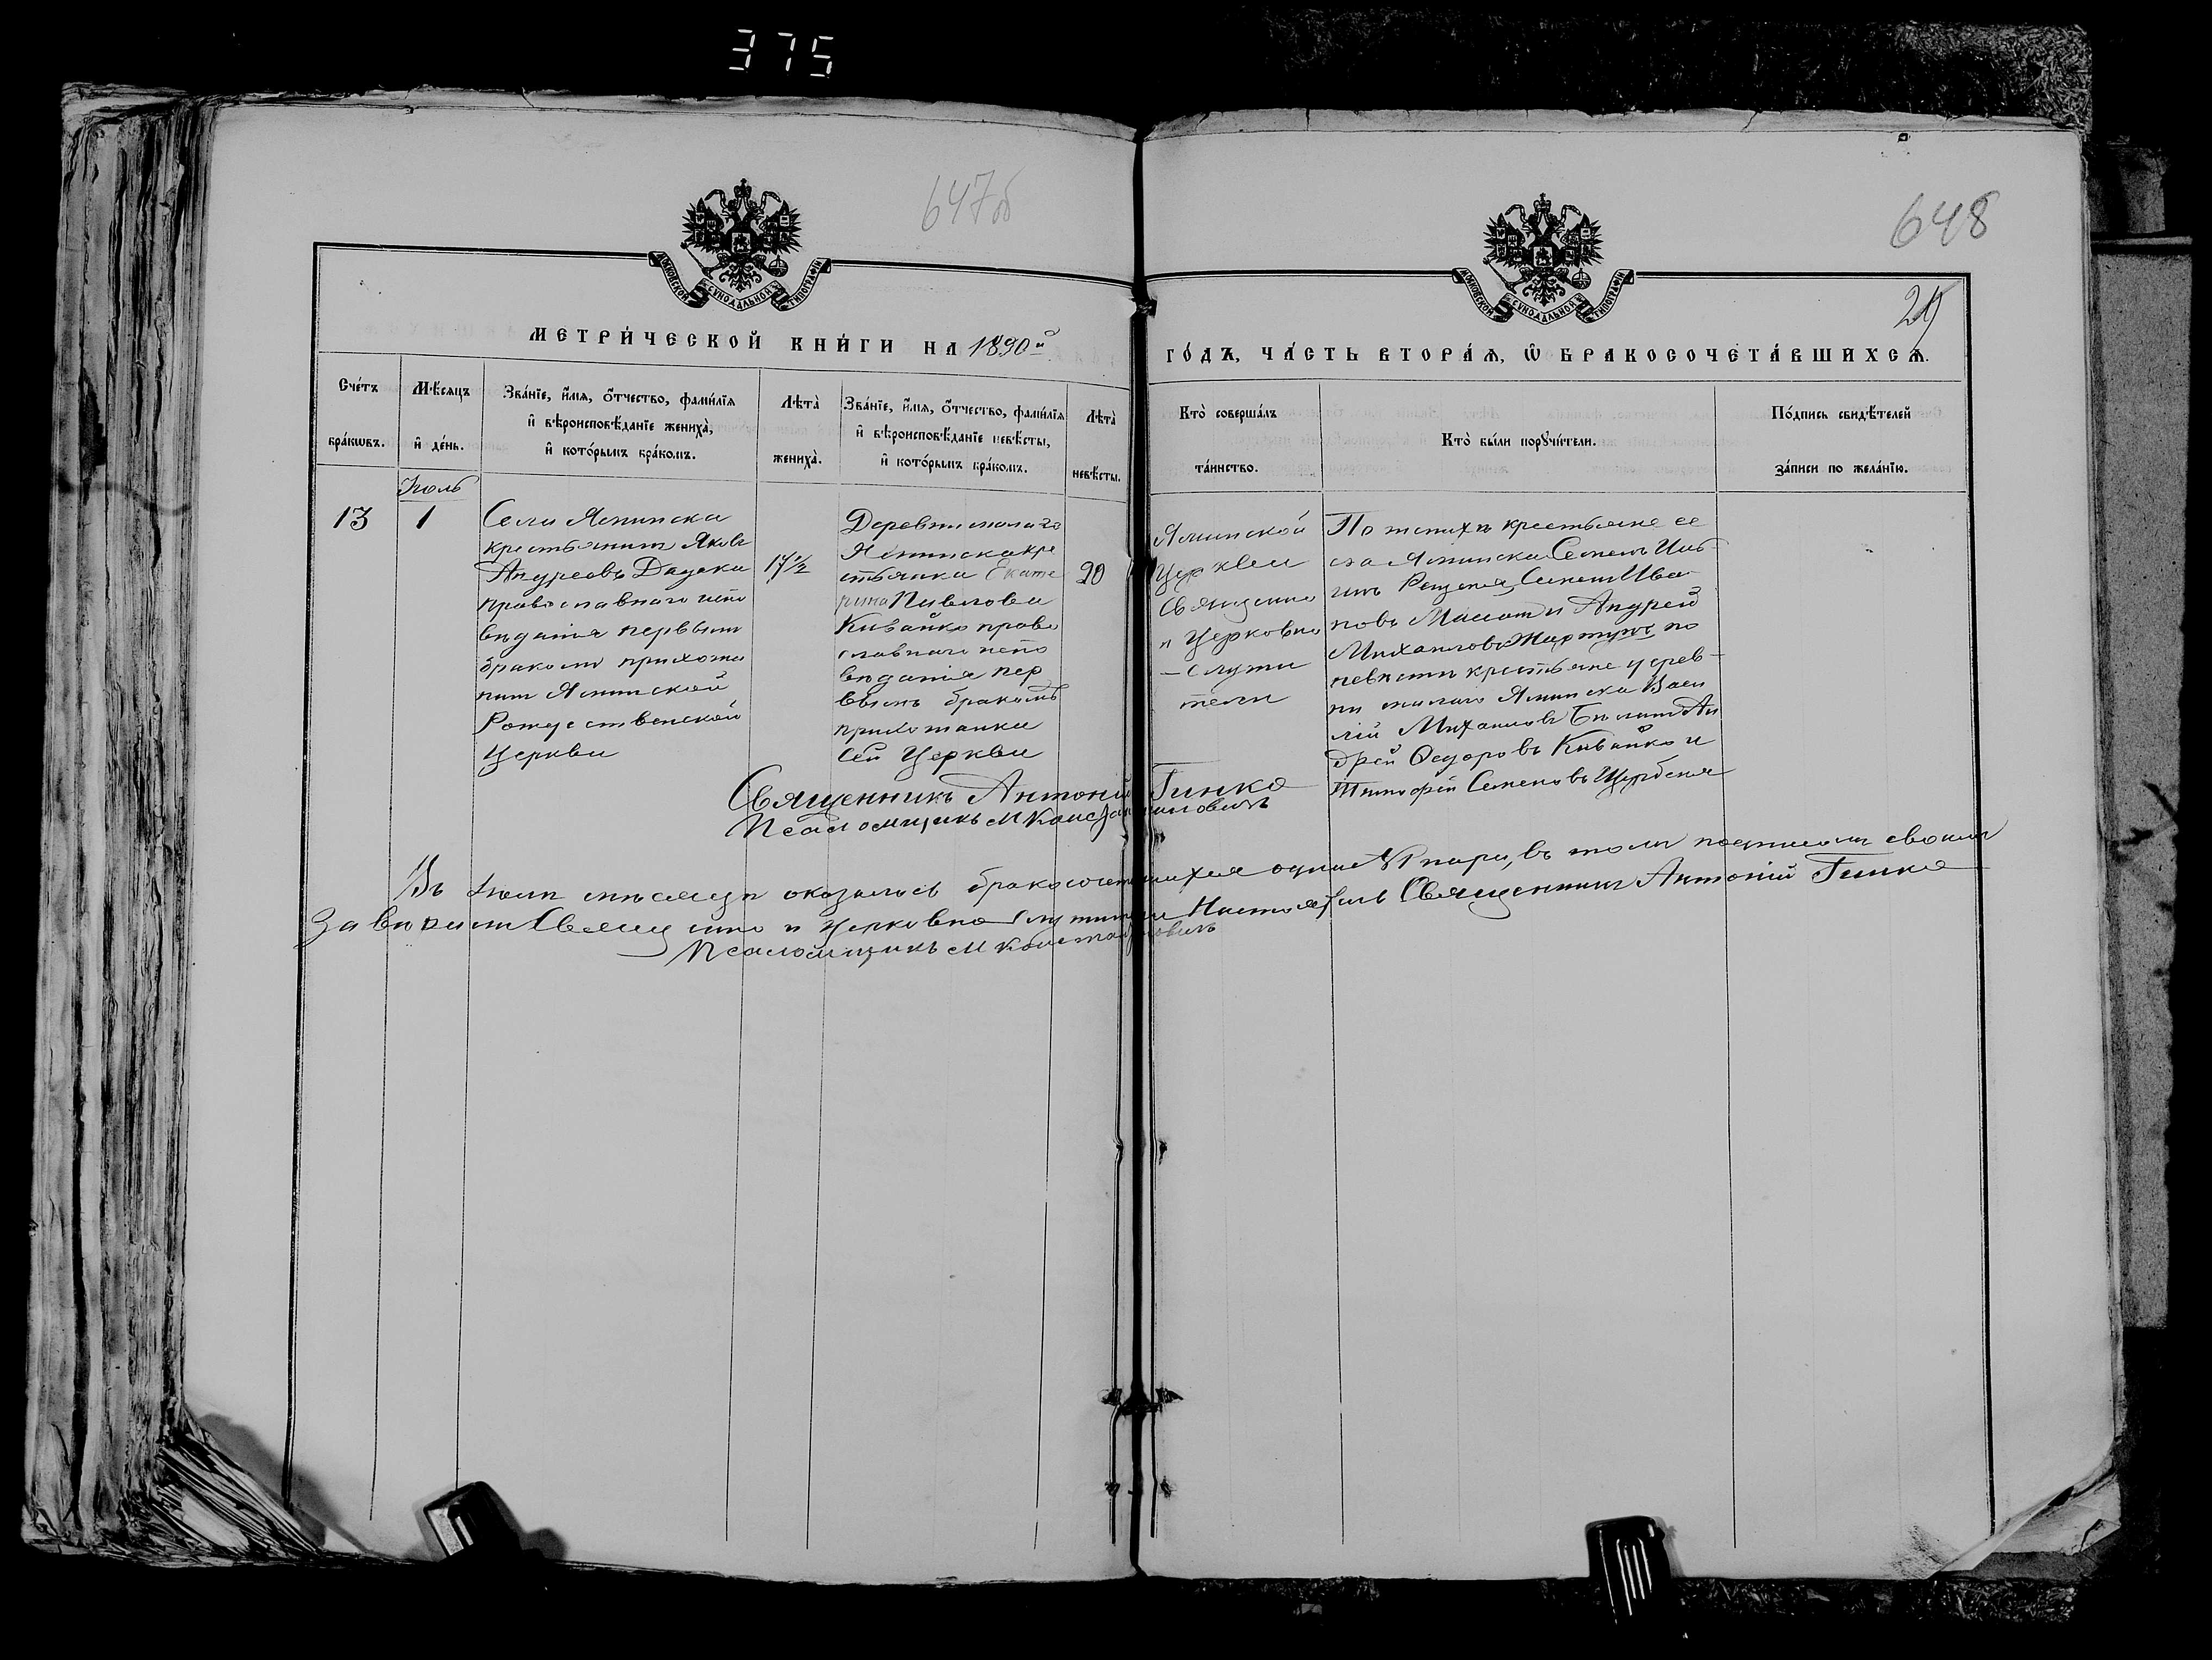 375
647об
648
29
МОСКОВСКОЙ СУНОДАЛЬНОЙ ТИПОГРАФІИ
МОСКОВСКОЙ СУНОДАЛЬНОЙ ТИПОГРАФІИ
МЕТРИ́ЧЕСКОЙ КНИ́ГИ НА 1890й
ГО́ДЪ, ЧА́СТЬ ВТОРА́Ѧ, Ѡ БРАКОСОЧЕТА́ВШИХСѦ.
Сче́тъ
бра́ковъ.
Мѣ́сяцъ
и де́нь.
Зва́нїе, и́мя, о́тчество, фами́лїя
и вѣроисповѣ́данїе жениха̀,
и кото́рымъ бра́комъ.
Лѣта̀
жениха̀.
Зва́нїе, и́мя, о́тчество, фами́лїя
и вѣроисповѣ́данїе невѣ́сты,
и кото́рымъ бра́комъ.
Лѣта̀
невѣ́сты.
Кто̀ соверша́лъ
та́инство.
Кто̀ бы́ли пορꙋчи́тели.
По́дпись свидѣ́телей
за́писи по жела́нїю.
Іюль
13
1
Села Яминска
крестьянинъ Яковъ
Андреевъ Дадека
православнаго испо
вѣданія первымъ
бракомъ прихожа
нинъ Яминской
Рождественской
Церкви
17 1/2
Деревни малаго
Яминска кре
стьянка Екате
рина Павлова
Кивайко право
славнаго испо
вѣданія пер
вымъ бракомъ
прихожанка
сей Церкви
20
Яминской
Церкви
Священно
и Церковно
-служи
тели
По женихѣ крестьяне се
ла Яминска Семенъ Иль
инъ Семенъ Ива-
новъ и Андрей
Михаиловъ по
невѣстѣ крестьяне дерев-
ни малаго Яминска Васи
лій Михаиловъ Ан
дрей Ѳедоровъ Кивайко и
Тимофій Семеновъ
Священникъ Антоній Гинко
Псаломщикъ М Константиновичъ
Въ Іюлѣ мѣсяцѣ оказалось бракосочетавшихся одна 1 пара, въ томъ подписомъ своимъ
завѣряемъ Священно и Церковно служители Настоятель Священникъ Антоній Гинко
Псаломщикъ М Константиновичъ